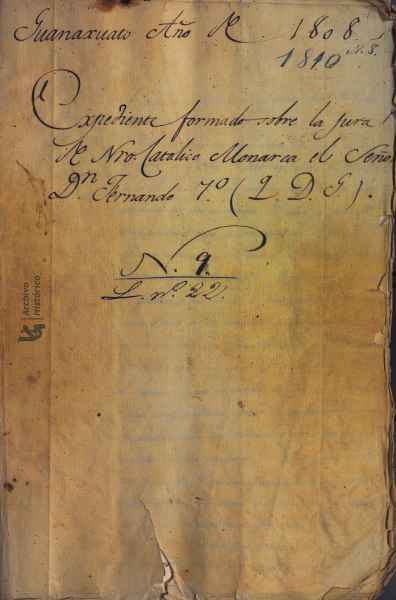 Guanaxuato Año de 1808.
N. 8.
1810
Expediente formado sobre la jura
de Nro. Catolico Monarca el Señor
Dn. Fernando 7.º (Q. D. G.).
N. 9.
L. nº. 22.
Archivo
Histórico